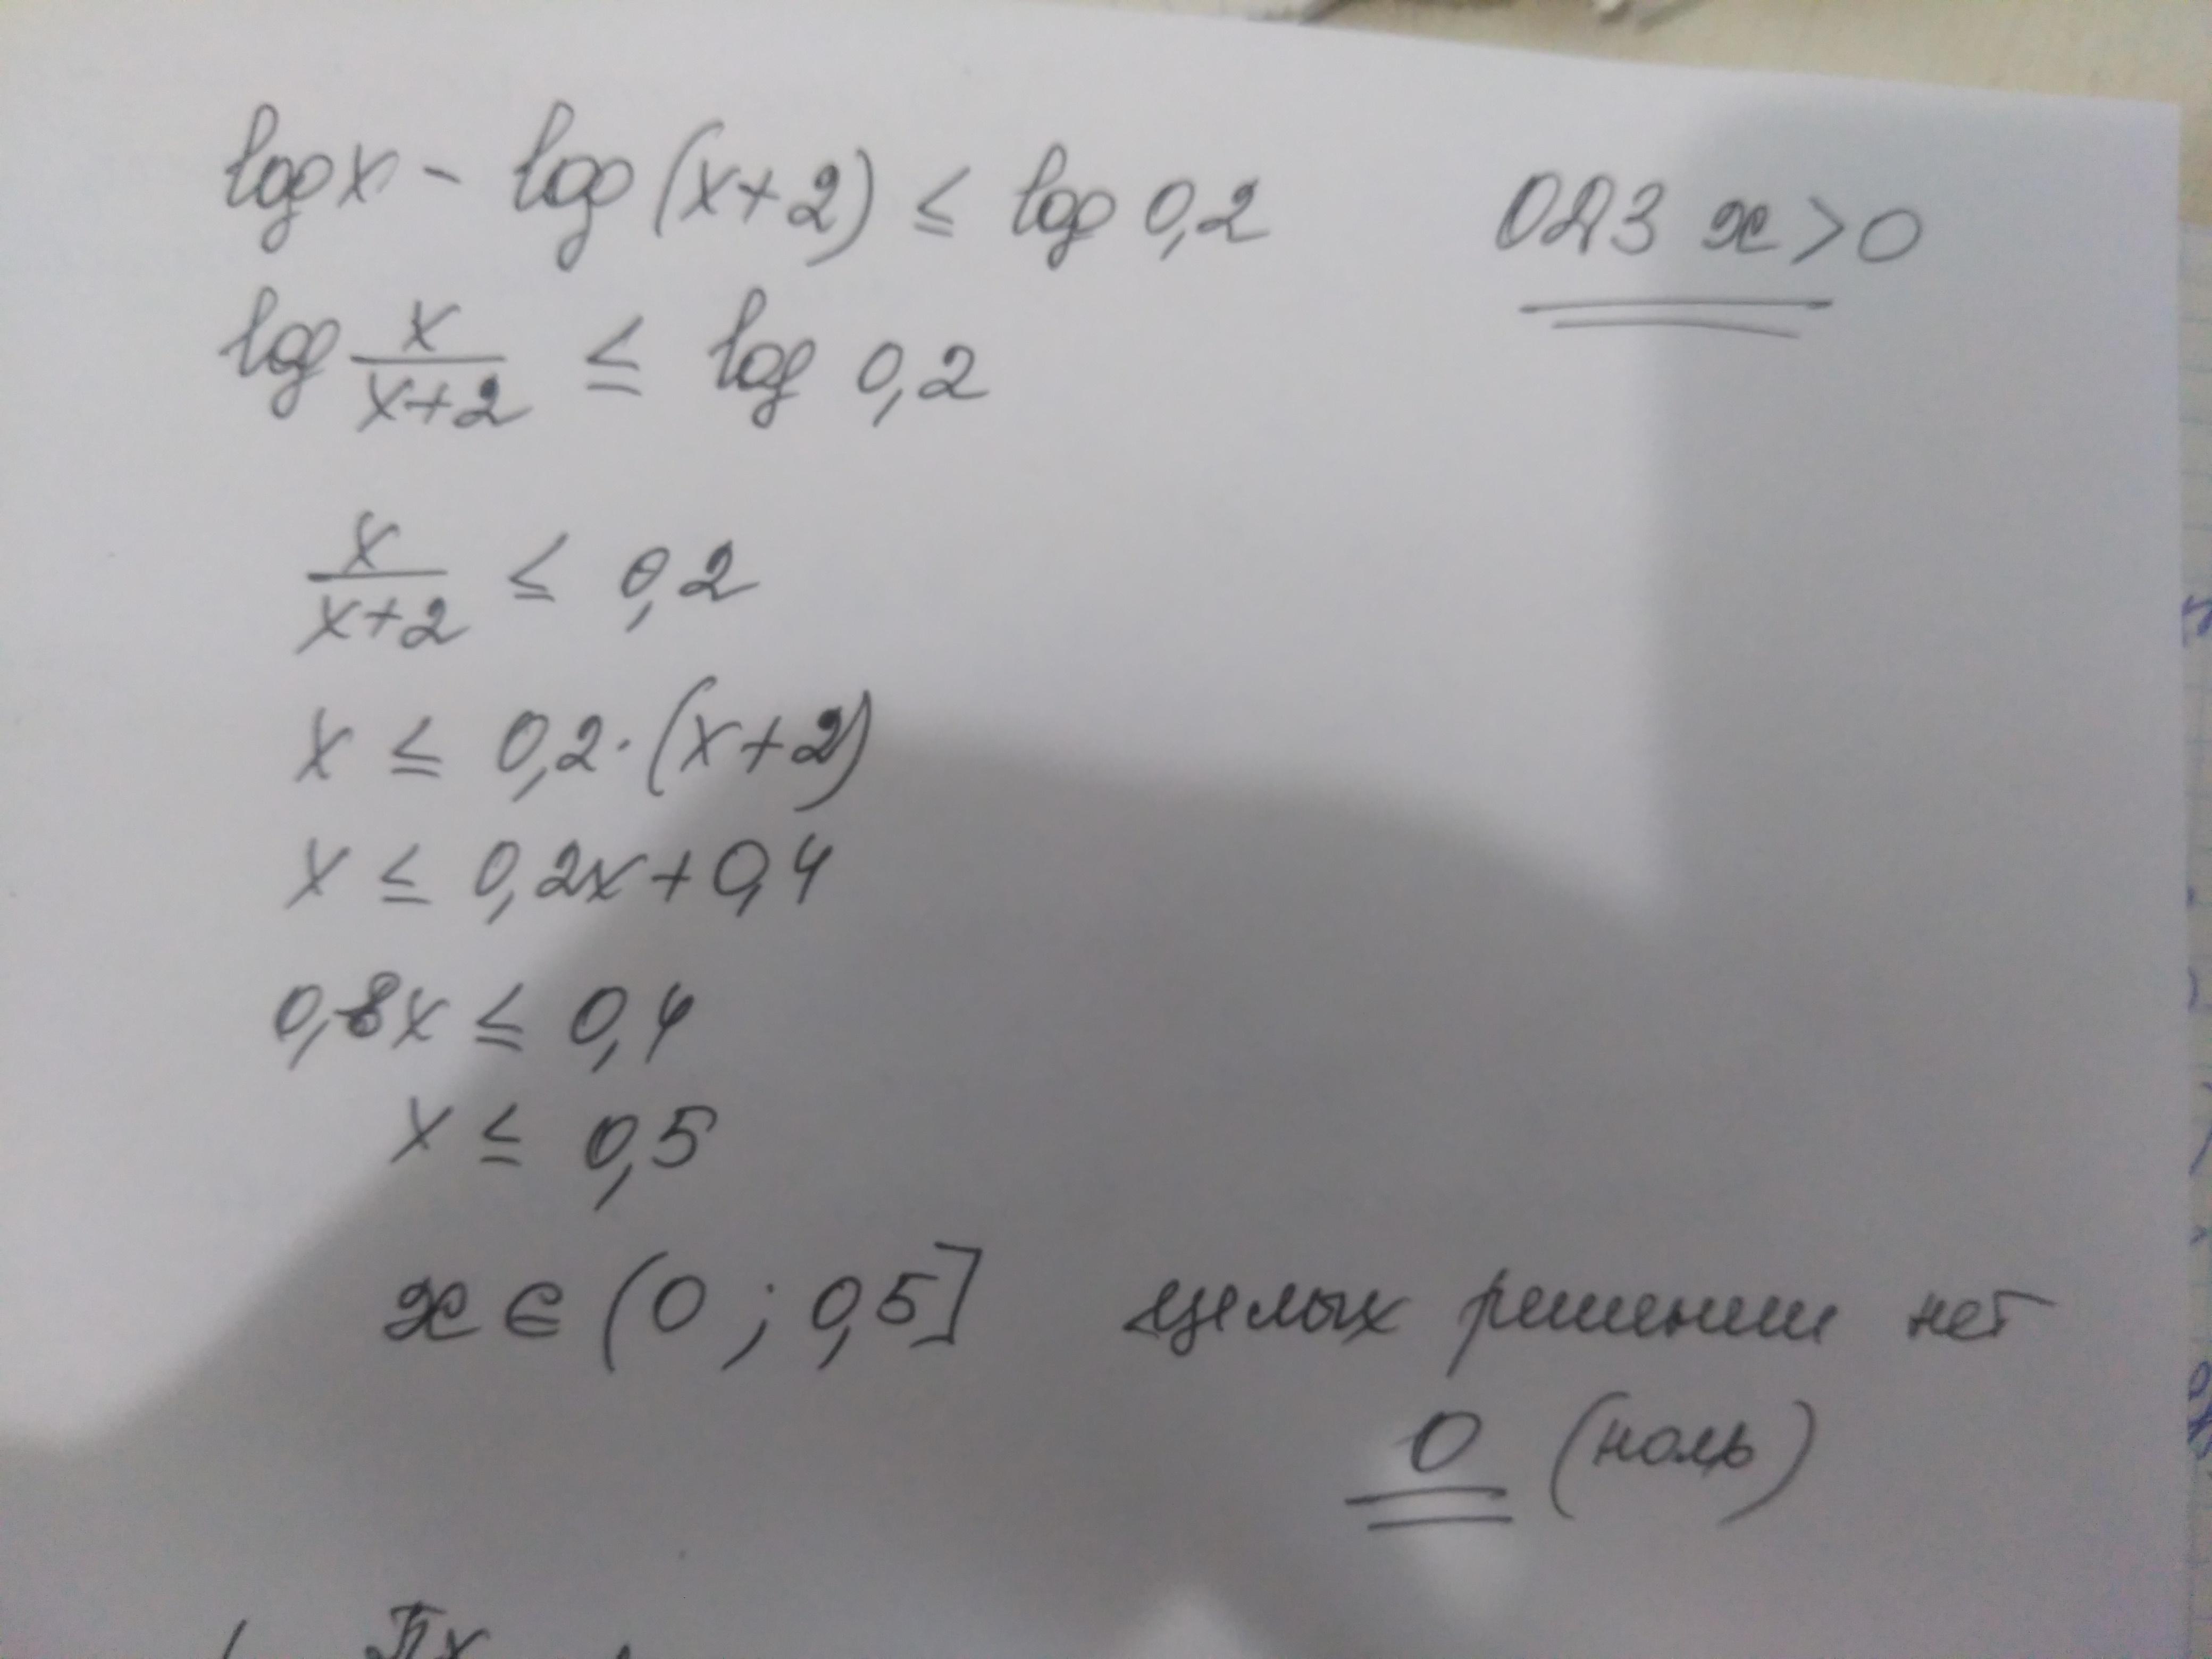 log x - log (x+2) ≤ log 0,2 ОДЗ x>0
log x/(x+2) ≤ log 0,2
x/(x+2) ≤ 0,2
x ≤ 0,2·(x+2)
x ≤ 0,2x+0,4
0,8x ≤ 0,4
x ≤ 0,5
x ∈ (0 ; 0,5] целых решении нет
0 (ноль)